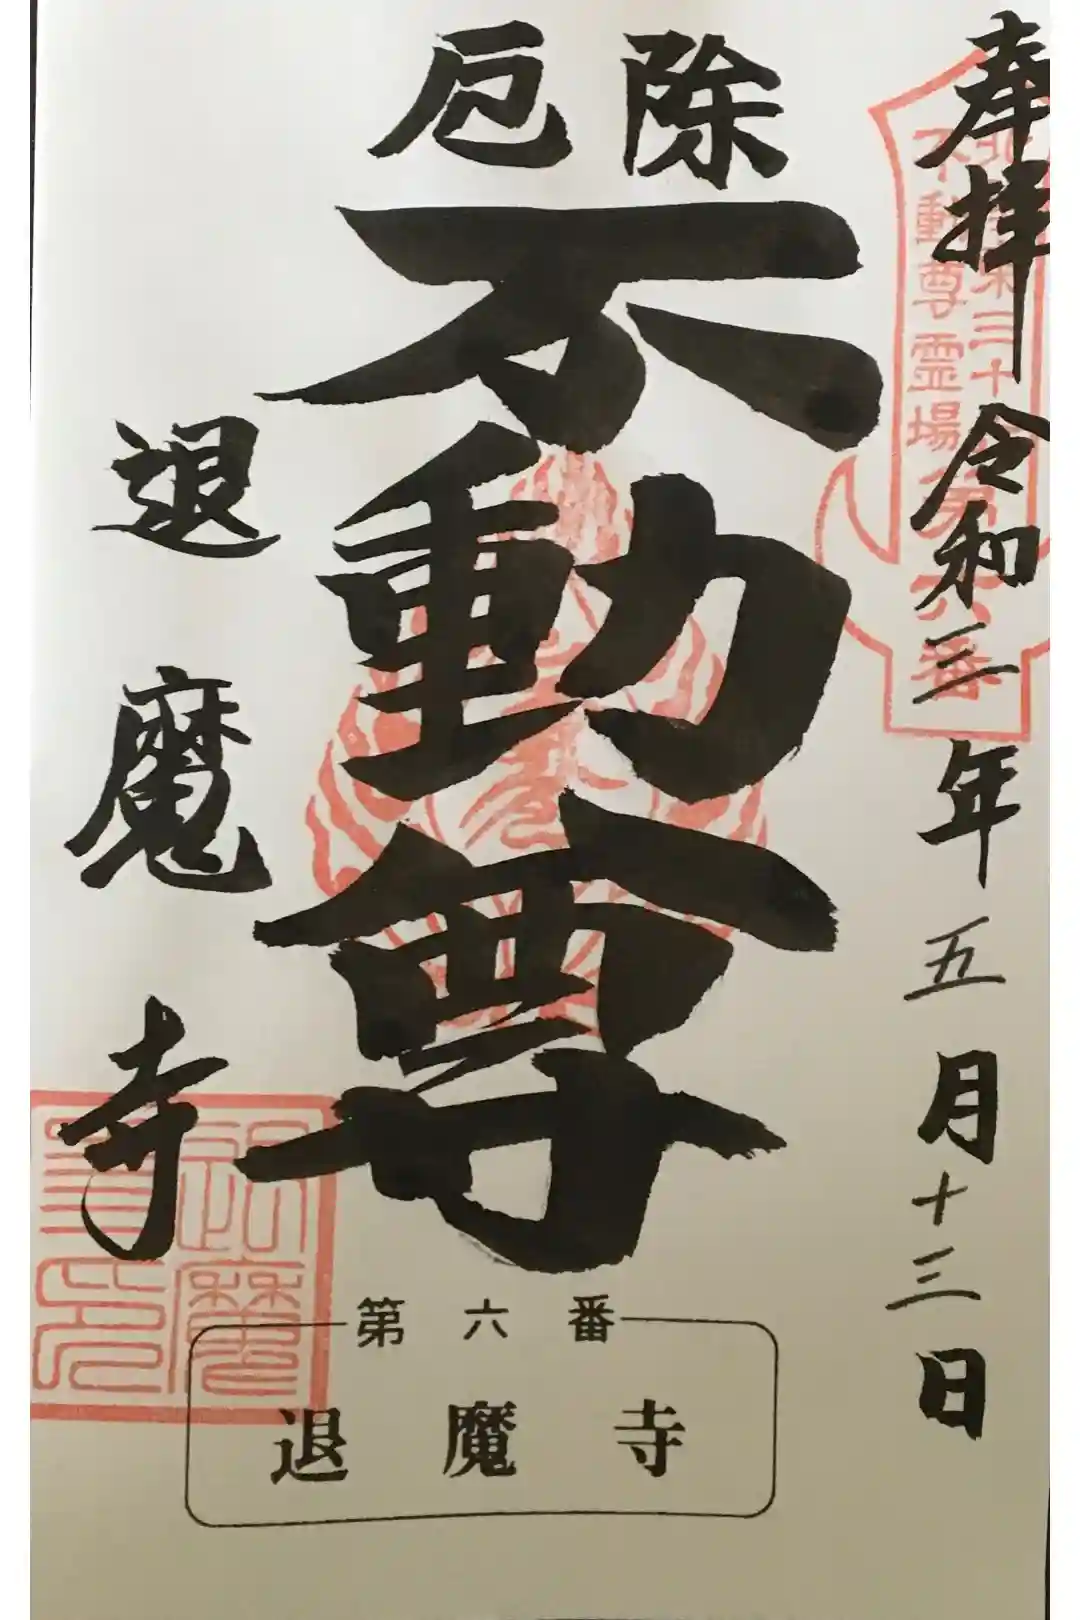 奉拝
令和三年五月十三日
不動尊霊場
第六番
除厄
不動尊
退魔寺
第六番
退魔寺